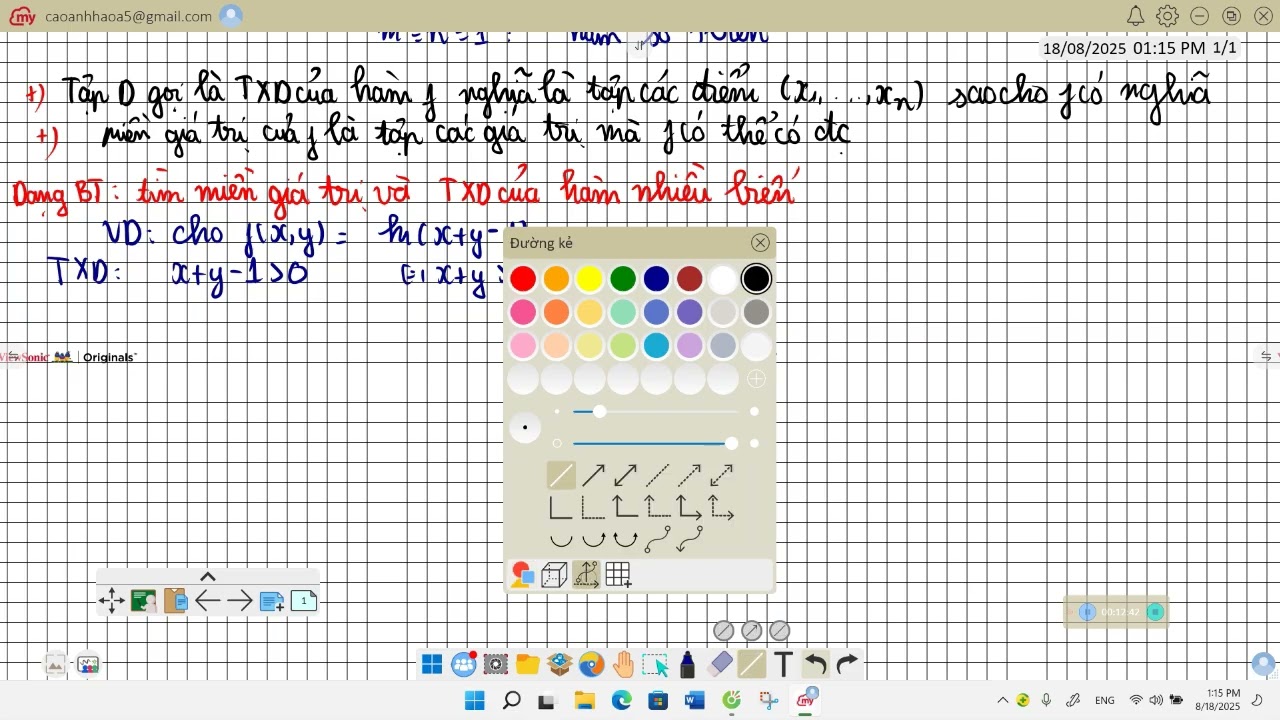 caoanhhaoa5@gmail.com
18/08/2025 01:15 PM 1/1
m = n = 1 : hàm số 1 biến
+) Tập D gọi là TXD của hàm f nghĩa là tập các điểm (x₁, ..., xₙ) sao cho f có nghĩa
+) miền giá trị của f là tập các giá trị mà f có thể có đc
Dạng BT: tìm miền giá trị và TXD của hàm nhiều biến
VD: cho f(x,y) = ln(x+y-1)
TXD: x+y-1>0 (=) x+y >
Đường kẻ
ViewSonic | Originals™
1
00:12:42
T
my
ENG
1:15 PM
8/18/2025